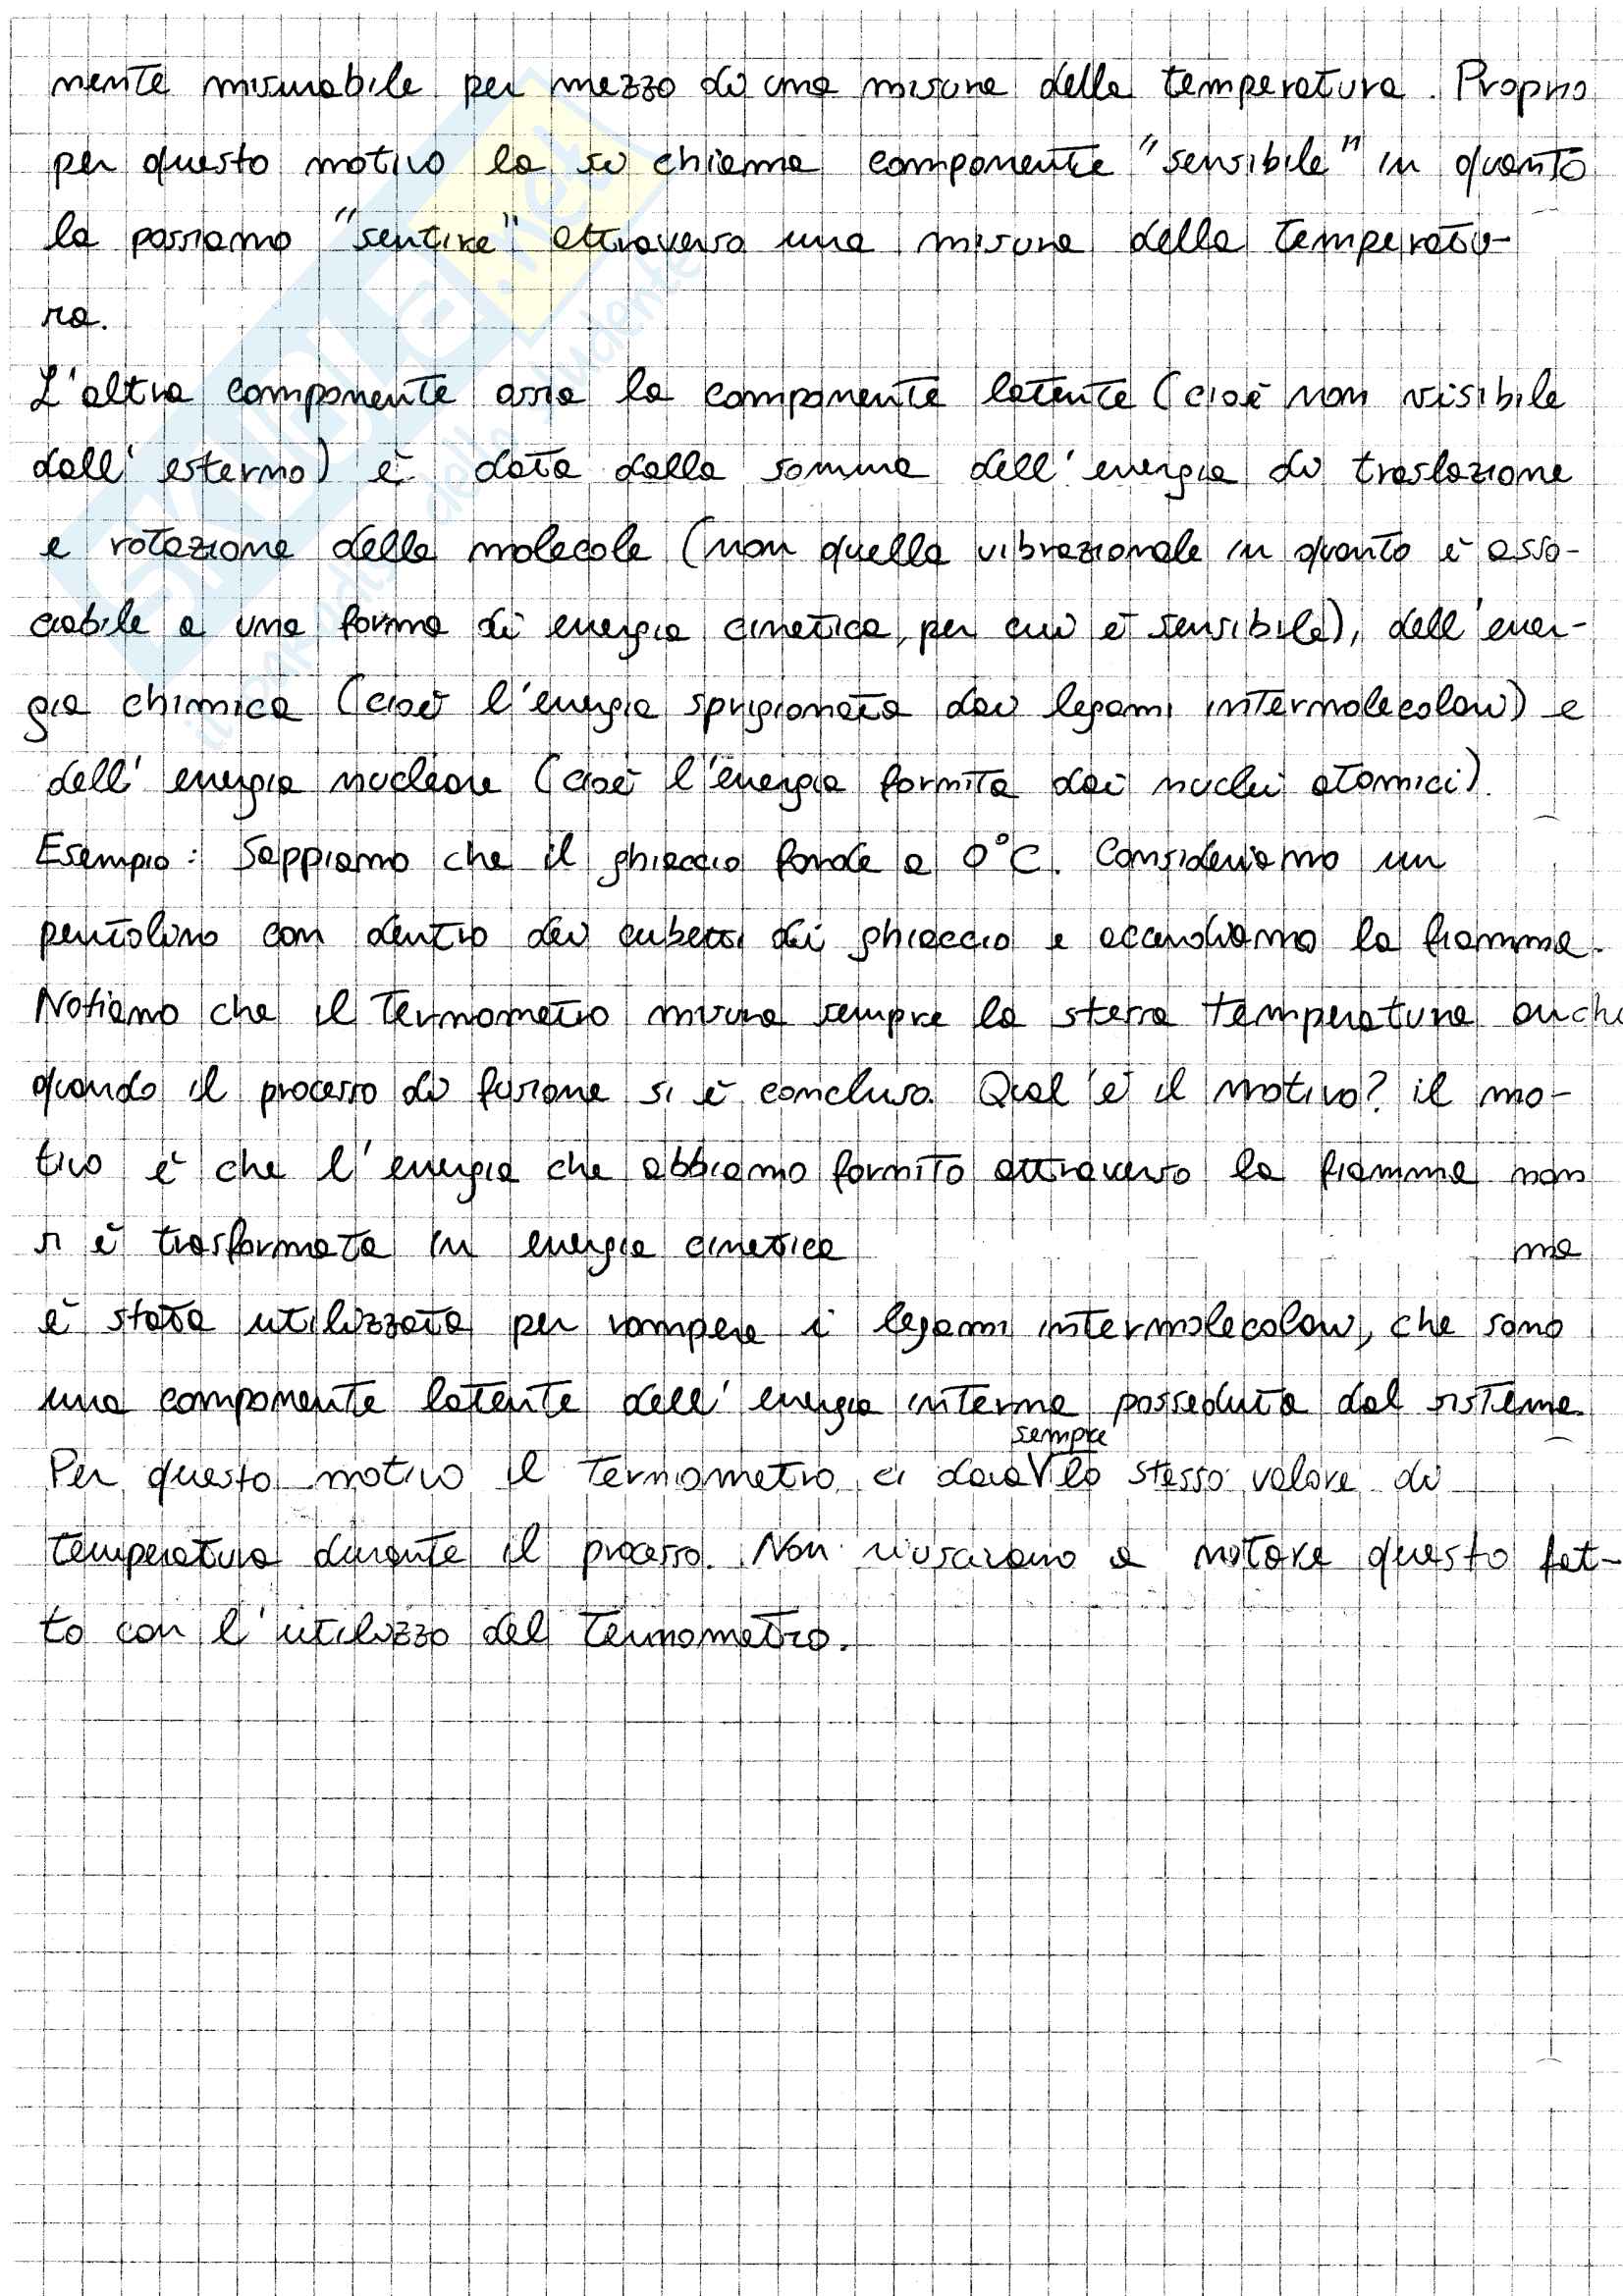 mente misurabile per mezzo di una misura della temperatura. Proprio
per questo motivo la si chiama componente "sensibile" in quanto
la possiamo "sentire" attraverso una misura della temperatu-
ra.
L'altra componente ossia la componente latente (cioè non visibile
dall'esterno) è data dalla somma dell'energia di traslazione
e rotazione delle molecole (non quella vibrazionale in quanto è asso-
ciabile a una forma di energia cinetica, per cui è sensibile), dell'ener-
gia chimica (cioè l'energia sprigionata dai legami intermolecolari) e
dell'energia nucleare (cioè l'energia fornita dai nuclei atomici).
Esempio: Sappiamo che il ghiaccio fonde a 0°C. Consideriamo un
pentolino con dentro dei cubetti di ghiaccio e accendiamo la fiamma.
Notiamo che il termometro misura sempre la stessa temperatura anche
quando il processo di fusione si è concluso. Qual'è il motivo? il mo-
tivo è che l'energia che abbiamo fornito attraverso la fiamma non
si è trasformata in energia cinetica ma
è stata utilizzata per rompere i legami intermolecolari, che sono
una componente latente dell'energia interna posseduta dal sistema.
Per questo motivo il termometro ci darà sempre lo stesso valore di
temperatura durante il processo. Non riusciamo a notare questo fat-
to con l'utilizzo del termometro.
SKUOLA.net